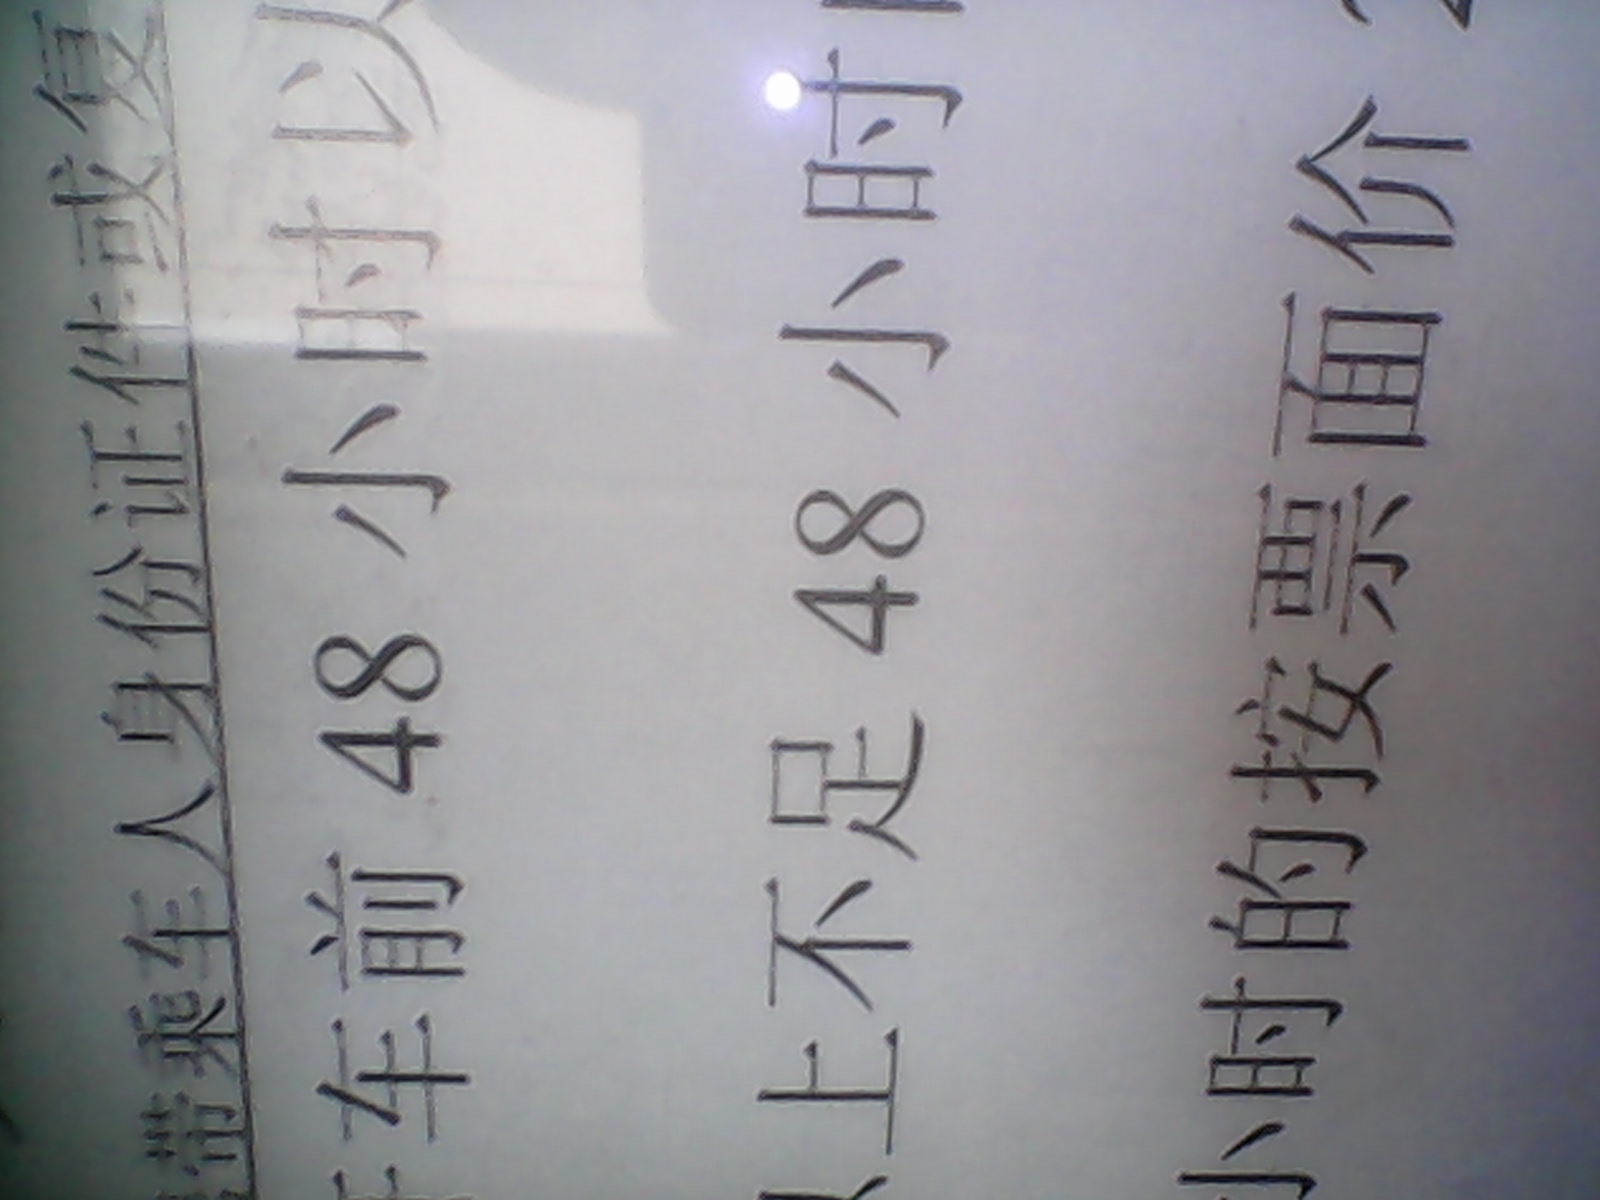 带乘车人身份证件或复
车前 48 小时以
上不足 48 小时
小时的按票面价